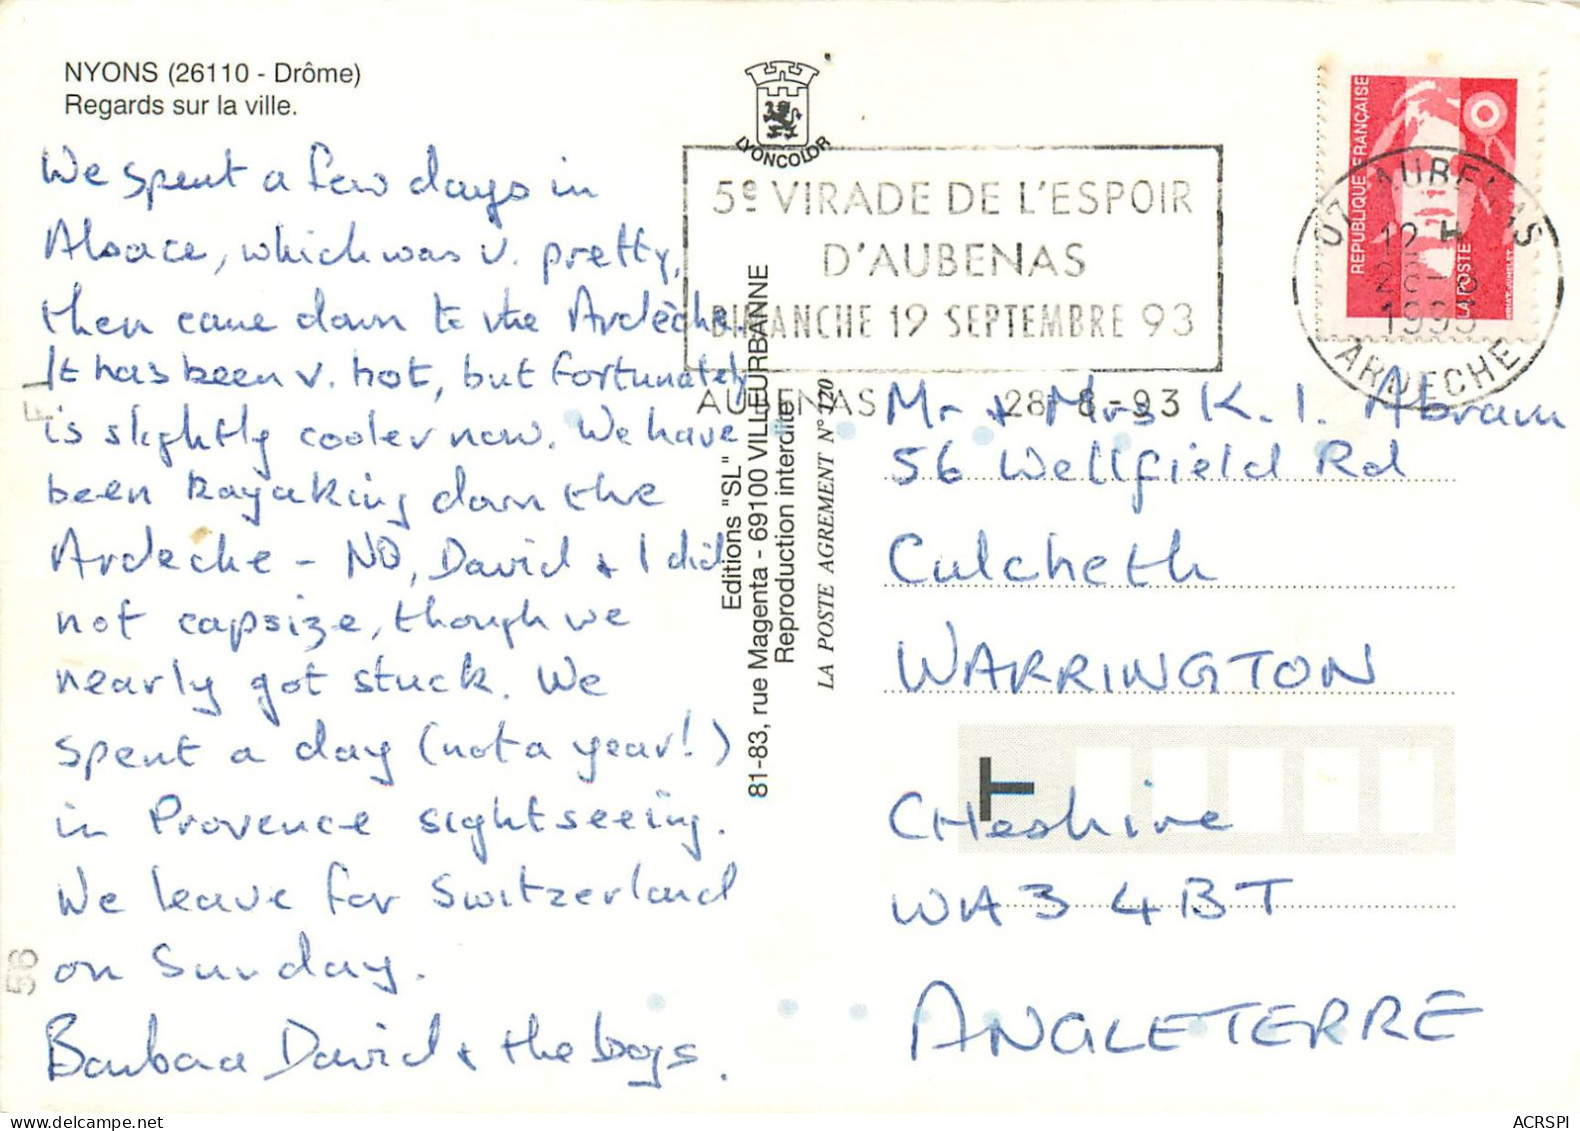 NYONS (26110 - Drôme)
Regards sur la ville.
We spent a few days in
Alsace, which was v. pretty,
then came down to the Ardèche.
It has been v. hot, but fortunately
is slightly cooler now. We have
been kayaking down the
Ardeche - NO, David & I did
not capsize, though we
nearly got stuck. We
spent a day (not a year!)
in Provence sightseeing.
We leave for Switzerland
on Sunday.
Barbara David & the boys.
LYONCOLOR
5e VIRADE DE L'ESPOIR
D'AUBENAS
DIMANCHE 19 SEPTEMBRE 93
AUBENAS 28-8-93
Editions "SL"
81-83, rue Magenta - 69100 VILLEURBANNE
Reproduction interdite
LA POSTE AGREMENT N° 120
REPUBLIQUE FRANÇAISE
LA POSTE
07 AUBENAS
12 H
28-8
1993
ARDECHE
Mr & Mrs K. I. Abram
56 Wellfield Rd
Culcheth
WARRINGTON
T
CHeshire
WA3 4BT
ANGLETERRE
F L
56
ACRSPI